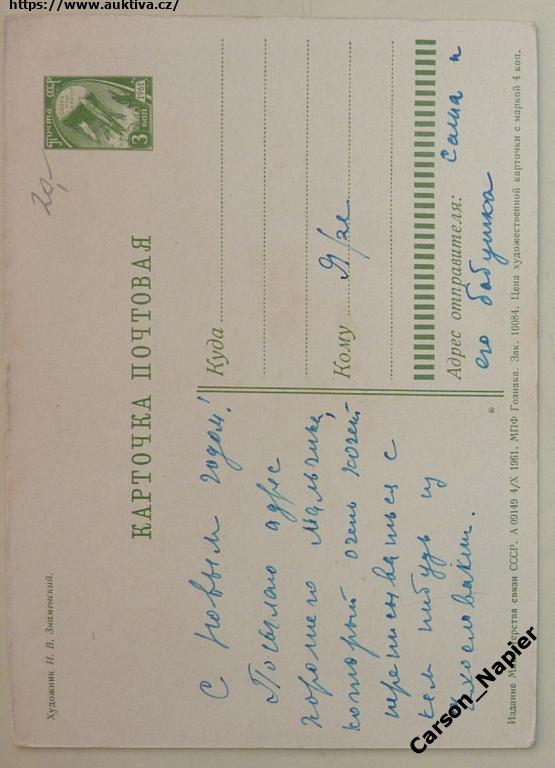 https://www.auktiva.cz/
Художник И. В. Знаменский.
КАРТОЧКА ПОЧТОВАЯ
Почта СССР
1961
3 коп
20,-
С новым годом!
Посылаю адрес
хорошего мальчика,
который очень хочет
переписываться с
кем нибудь из
Чехословакии.
Куда
Кому
Адрес отправителя: Саша и
его бабушка
*
Издание Министерства связи СССР. А 09149 4/X 1961. МПФ Гознака. Зак. 16084. Цена художественной карточки с маркой 4 коп.
Carson_Napier